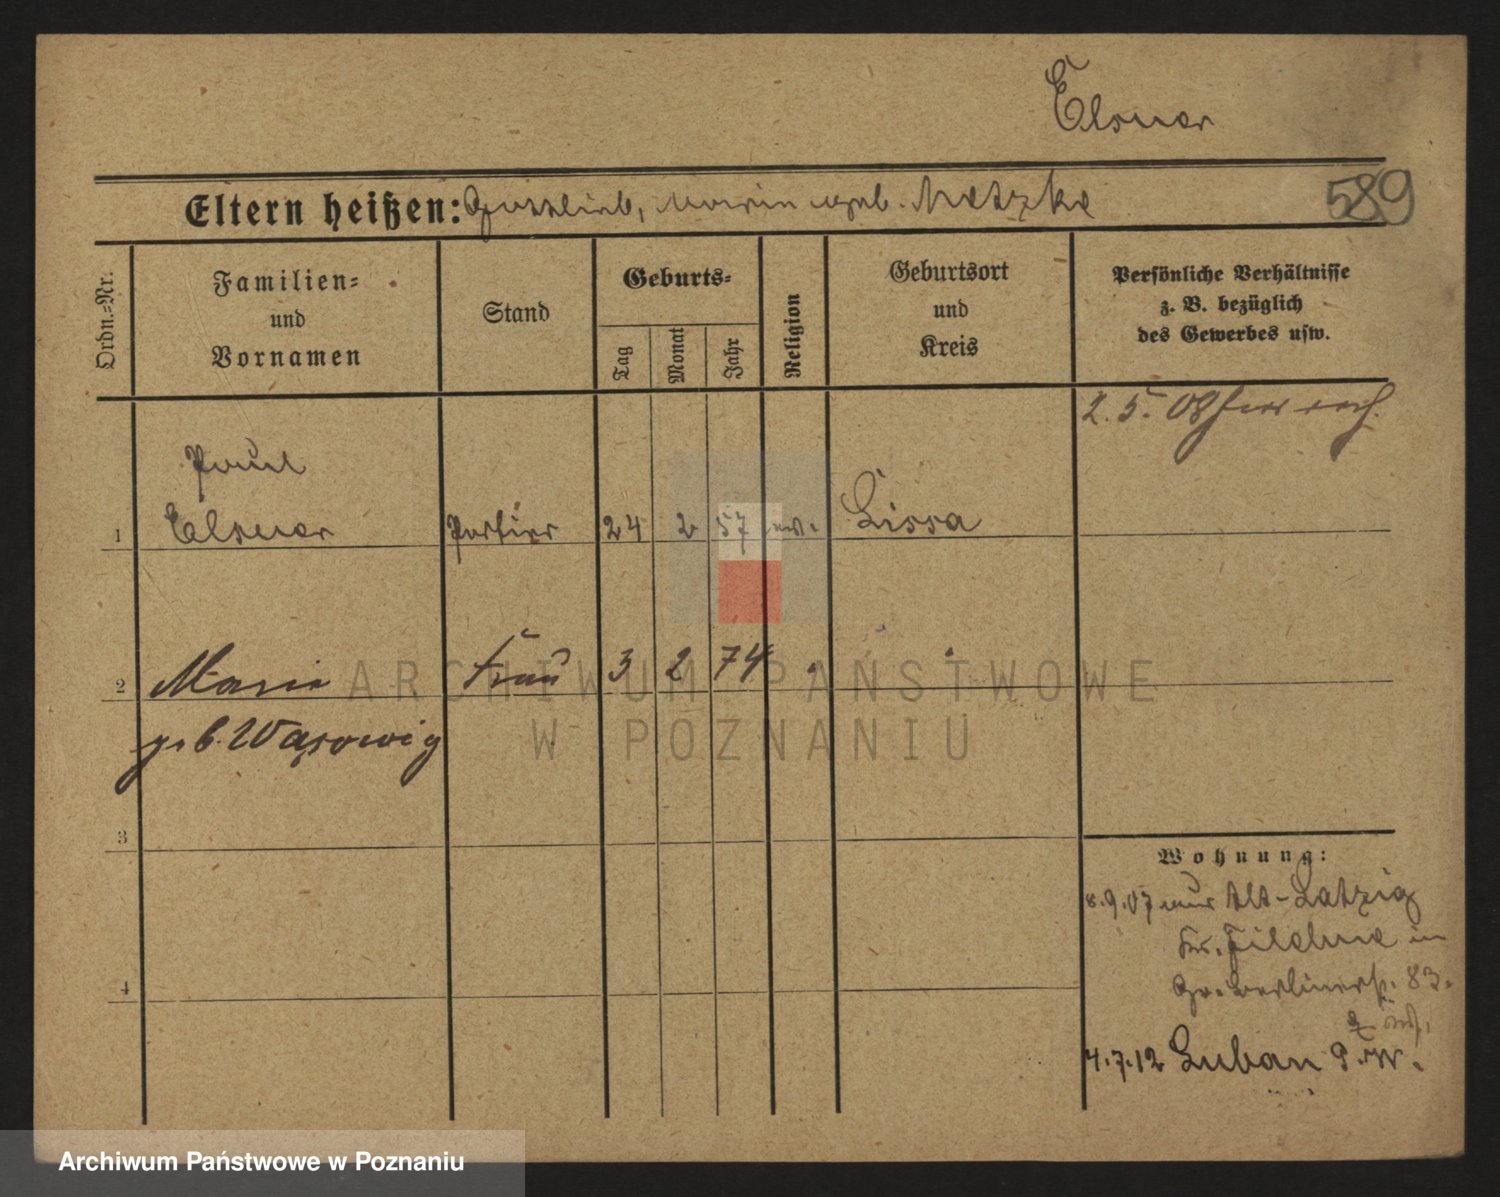 Elsner
Eltern heißen: Gottlieb, Marie geb. Matzke
589
Ordn.=Nr.
Familien=
und
Vornamen
Stand
Geburts=
Tag
Monat
Jahr
Religion
Geburtsort
und
Kreis
Persönliche Verhältnisse
z. B. bezüglich
des Gewerbes usw.
2. 5. 08
Paul
1 Elsner Portier 24 2 57 ev. Lissa
2 Marie Frau 3 2 74
geb. Wasowig
3
4
Wohnung:
8.9.07 aus Alt-Latzig
Kr. Filehne in
Gr. Berlinerstr. 83.
4.7.12 Luban P. W.
ARCHIWUM PAŃSTWOWE
W POZNANIU
Archiwum Państwowe w Poznaniu